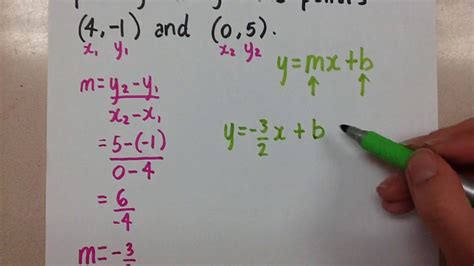 (4,-1) and (0,5).
x₁ y₁ x₂ y₂
m = y₂-y₁
x₂-x₁
= 5-(-1)
0-4
= 6
-4
m = -3
y = mx + b
y = -3/2 x + b